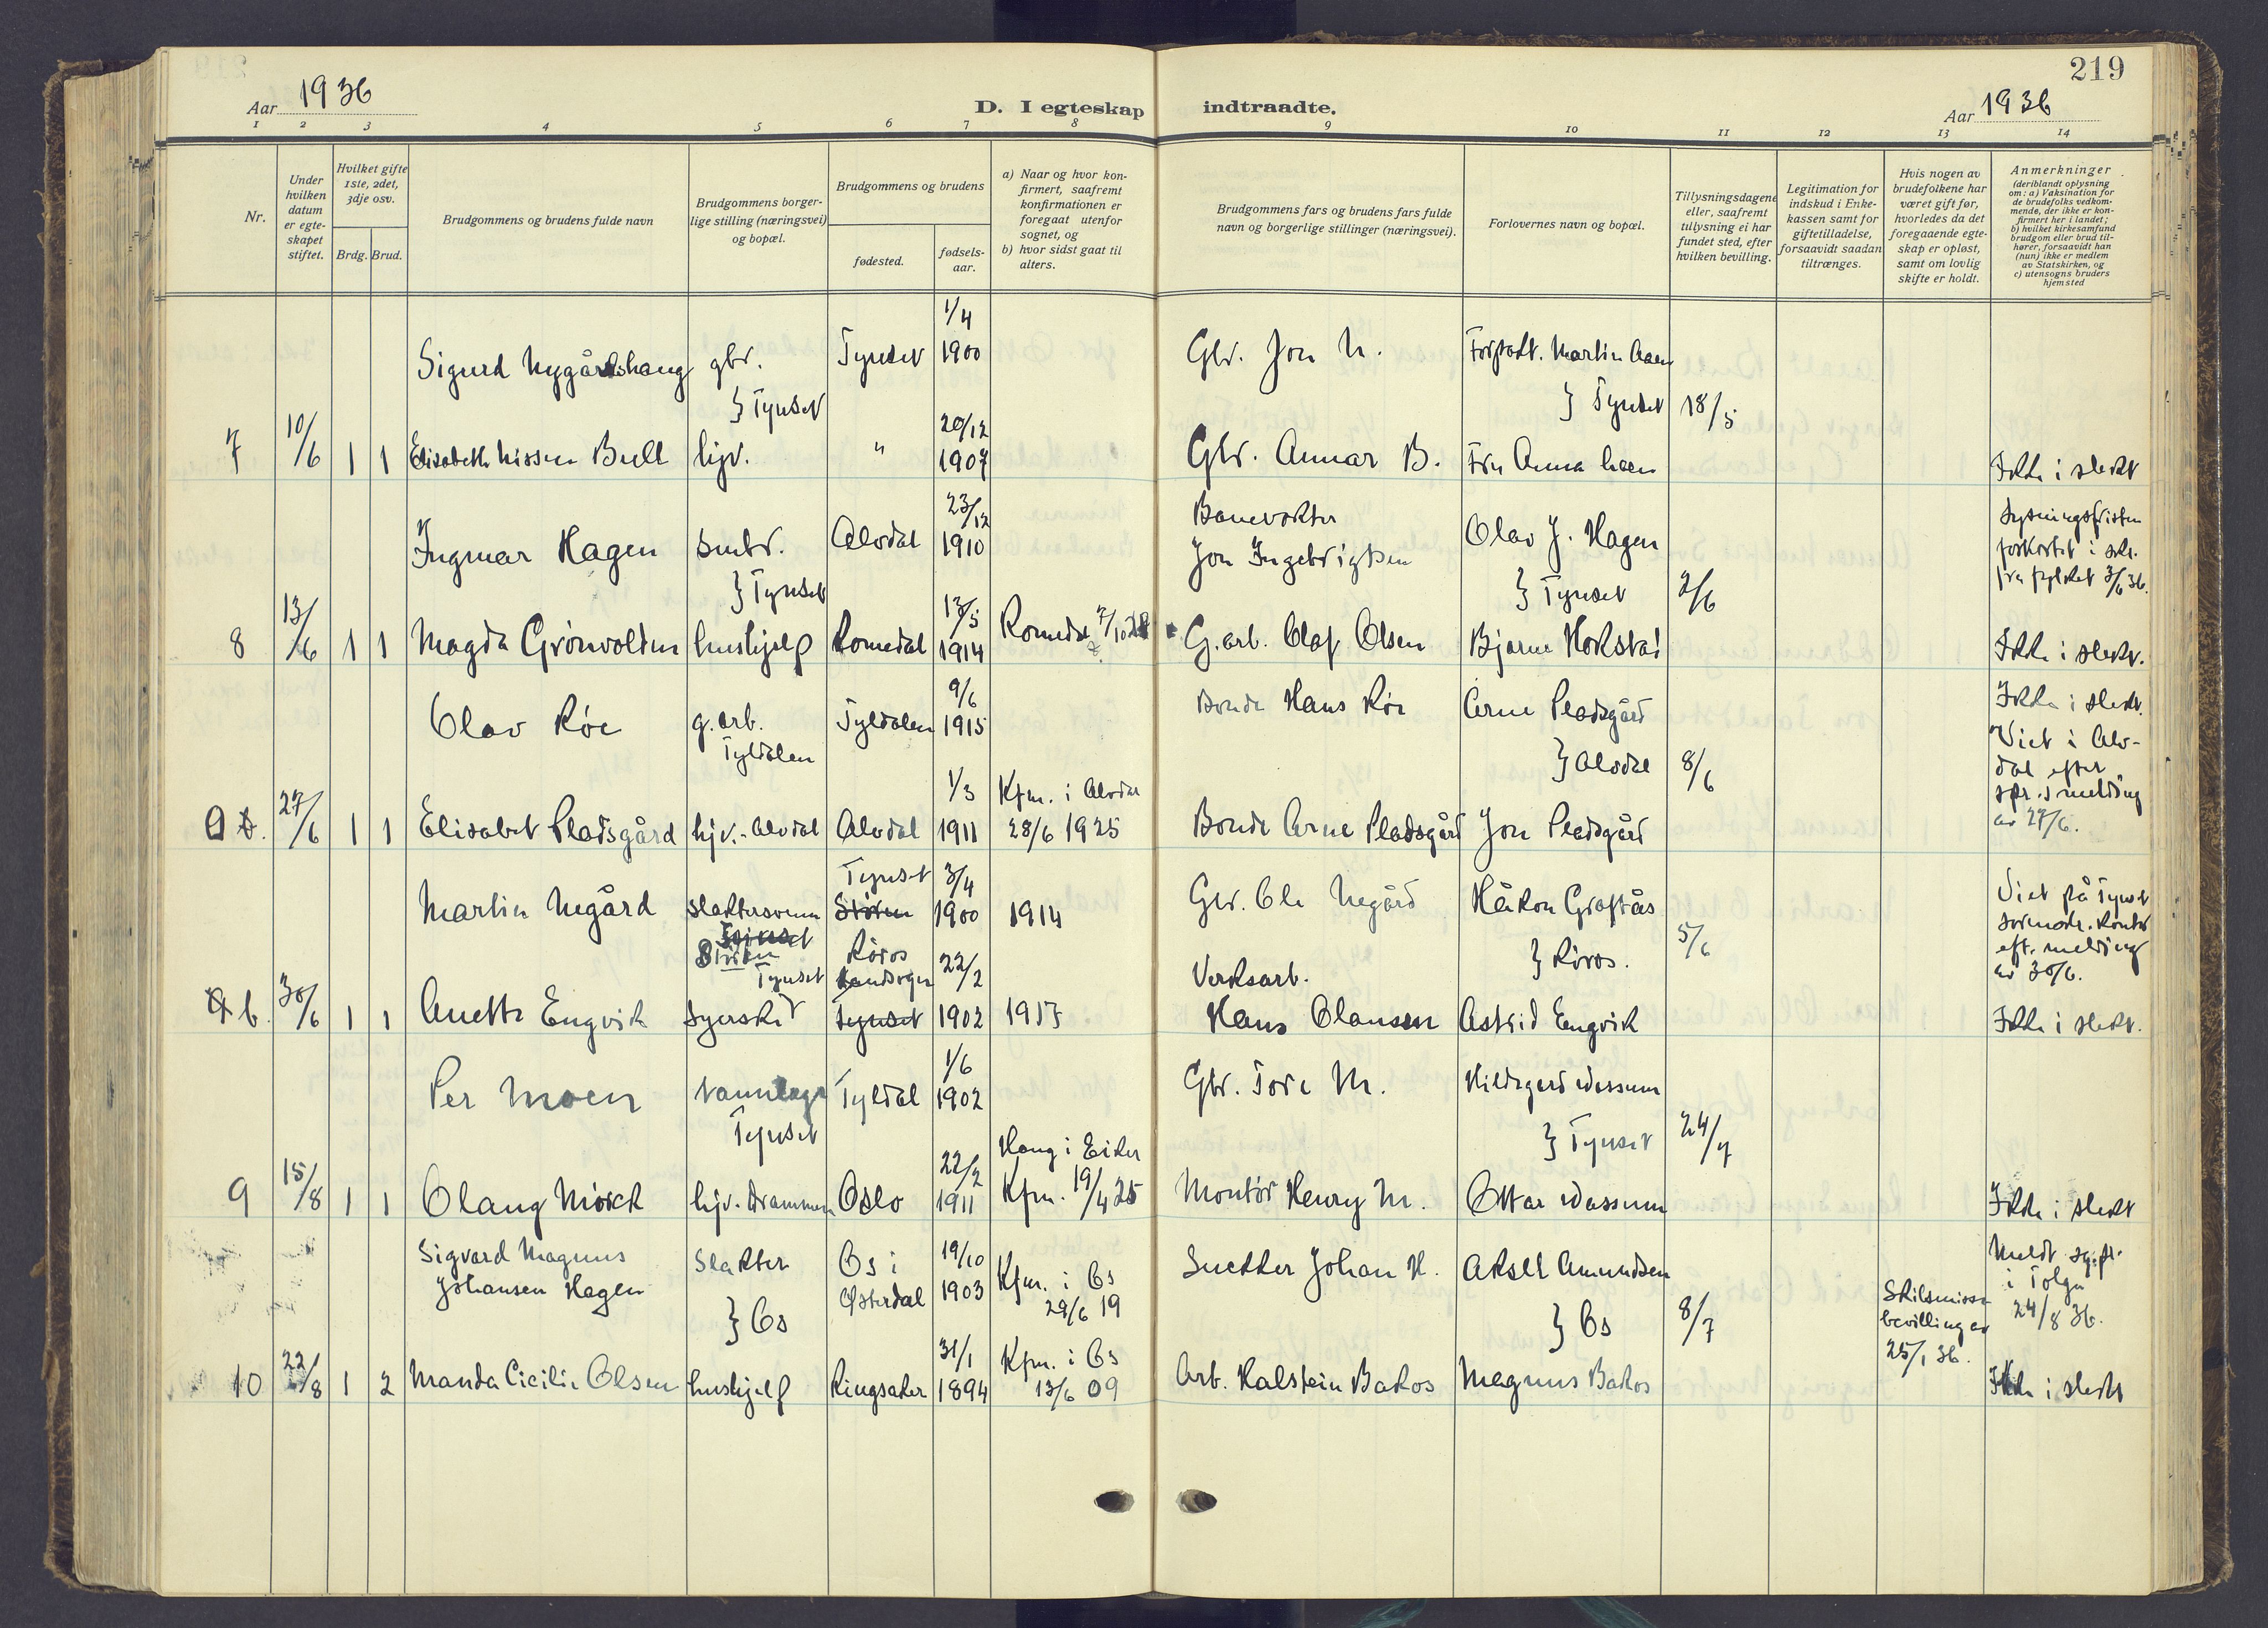 219
Aar 1936
D. I egteskap indtraadte.
Aar 1936
1 2 3 4 5 6 7 8 9 10 11 12 13 14
Nr.
Under hvilken datum er egte-skapet stiftet.
Hvilket gifte 1ste, 2det, 3dje osv.
Brdg. Brud.
Brudgommens og brudens fulde navn
Brudgommens borger-lige stilling (næringsvei) og bopæl.
Brudgommens og brudens
fødested.
fødsels-aar.
a) Naar og hvor kon-firmert, saafremt konfirmationen er foregaat utenfor sognet, og
b) hvor sidst gaat til alters.
Brudgommens fars og brudens fars fulde navn og borgerlige stillinger (næringsvei).
Forlovernes navn og bopæl.
Tillysningsdagene eller, saafremt tillysning ei har fundet sted, efter hvilken bevilling.
Legitimation for indskud i Enke-kassen samt for giftetilladelse, forsaavidt saadan tiltrænges.
Hvis nogen av brudefolkene har været gift før, hvorledes da det foregaaende egte-skap er opløst, samt om lovlig skifte er holdt.
Anmerkninger (deriblandt oplysning om: a) Vaksination for de brudefolks vedkom-mende, der ikke er kon-firmert her i landet; b) hvilket kirkesamfund brudgom eller brud til-hører, forsaavidt han (hun) ikke er medlem av Statskirken, og c) utensogns bruders hjemsted
Sigurd Nygårdshaug gbr. Tynset 1/4 1900 Gbr. Jon N. Forstodt. Martin
} Tynset } Tynset 18/5
7 10/6 1 1 Elisabeth Nissen Bull hjv. " 20/12 1907 Gbr. Annar B. Fru Anna Ikke i slekt
Ingmar Hagen smbr. Alvdal 23/12 1910 Banevokter Jon Ingebrigtsen Olav J. Hagen Lysningsfristen forkortet i skr. fra fylket 3/6 36.
} Tynset } Tynset 2/6
8 13/6 1 1 Magda Grönvolden hushjelp Romedal 13/5 1914 Romedal 7/10 28 G.arb. Olaf Olsen Bjarne Hokstad Ikke i slekt.
Olav Röe g.arb. Tyldalen Tyldalen 9/6 1915 Bonde Hans Röe Arne Pladsgård Ikke i slekt.
} Alvdal 8/6 Viet i Alv-dal efter spr.s melding av 27/6.
a. 27/6 1 1 Elisabet Pladsgård hjv. - Alvdal Alvdal 1/3 1911 Kfm. i Alvdal 28/6 1925 Bonde Arne Pladsgård Jon Pladsgård
Martin Negård slaktersvenn Tynset Tynset 3/4 1900 1914 Gbr. Ole Negård Håkon Graftås Viet på Tynset sorenskr. kontor eft. melding av 30/6.
} Röros. 5/6
b. 30/6 1 1 Anette Engvik Syerske Tynset Röros Landsogn Tynset 22/2 1902 1917 Verksarb. Hans Olausen Astrid Engvik Ikke i slekt.
Per Moen Tynset Tyldal 1/6 1902 Gbr. Tore M. Hildegard Wessum
} Tynset 24/7
9 15/8 1 1 Olaug Mörck hjv. Drammen Oslo 22/2 1911 Haug i Eiker Kfm. 19/4 25 Montör Henry M. Ottar Wessum Ikke i slekt
Sigvard Magnus Johansen Hagen Slakter Os i Østerdal 19/10 1903 Kfm. i Os 29/6 19 Snekker Johan H. Aksel Amundsen Meldt sg.pr. i Tolga 24/8 36.
} Os } Os 8/7 Skilsmisse bevilling av 25/1 36.
10 22/8 1 2 Manda Cicilie Olsen hushjelp Ringsaker 31/1 1894 Kfm. i Os 13/6 09 Arb. Halstein Bakos Magnus Bakos Ikke i slekt